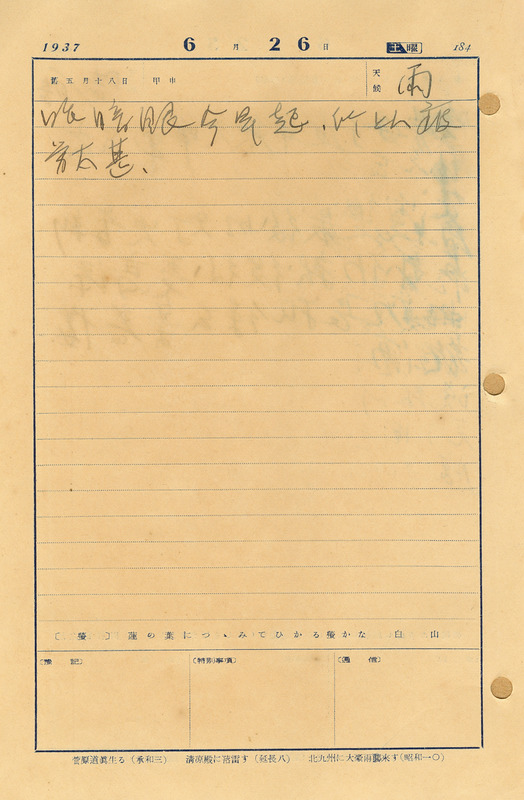 1937 6月26日 土曜 184
舊五月十八日 甲申 天候 雨
昨晚眼今早起、所以疲
勞太甚、
〔螢〕 蓮の葉につゝみてひかる螢かな 白山
〔豫記〕 〔特別事項〕 〔通信〕
菅原道眞生る(承和三) 清凉殿に落雷す(延長八) 北九州に大豪雨襲来す(昭和一〇)